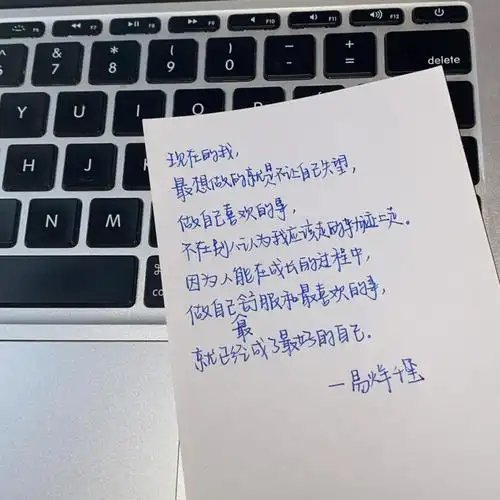 F7 F8 F9 F10 F11 F12
& * ( ) +
7 8 9 0 - = delete
Y U I O
H J K
N M
⌘
现在的我，
最想做的就是不让自己失望，
做自己喜欢的事，
不在别人认为我应该走的轨迹上走。
因为人能在成长的过程中，
做自己最舒服和最喜欢的事，
就已经成了最好的自己.
—易烊千玺